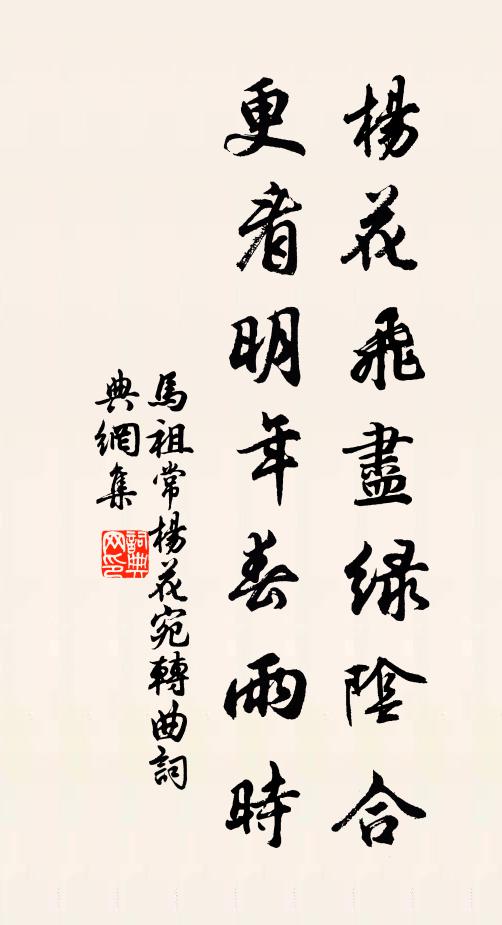 楊花飛盡緑陰合
更看明年春雨時
馬祖常楊花宛轉曲詞
典網集
詞典
网印